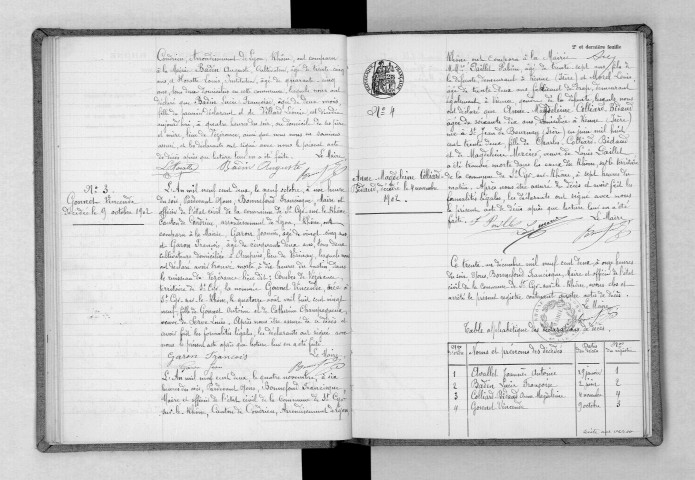 Condrieu, Arrondissement de Lyon, Rhône, ont comparu
à la Mairie Badin Auguste, cultivateur, âgé de trente cinq
ans, et Louis, Instituteur, âgé de quarante cinq
ans, tous deux domiciliés en cette commune, lesquels nous ont
déclaré que Badin Louis Françoise, âgé de deux mois,
fille de premier déclarant et de Louise, est décédée
aujourd'hui, à quatre heures du soir, au domicile de ses père
et mère, lieu de Vézérance, ainsi que nous nous en sommes
assuré, et les déclarants ont signé avec nous le présent acte
de décès après que lecture leur en a été faite. Le Maire,
Badin Auguste
No 3
Gonnet Vincende
Décédée le 9 octobre 1902
L'An mil neuf cent deux, le neuf octobre, à neuf heures
du soir, Pardevant nous, Bonnefond Francisque, Maire et
officier de l'état civil de la commune de St Cyr-sur-le-Rhône,
Canton de Condrieu, Arrondissement de Lyon, Rhône, ont
comparu à la Mairie, Garon Joannès, âgé de vingt cinq ans
et Garon François, âgé de cinquante deux ans, tous deux
cultivateurs domiciliés à Ampuis, lieu de Vérenay, lesquels nous
ont déclaré avoir trouvé morte, à dix heures du matin dans
le ruisseau de Vézérance, lieu dit: Combe de Vézérance,
territoire de St Cyr, la nommée Gonnet Vincende, née à
St Cyr-sur-le-Rhône, le quatorze août mil huit cent vingt
neuf, fille de Gonnet Antoine et de Catherine
veuve de Louis. Après nous être assuré de ce décès et
avoir fait les formalités légales, les déclarants ont signé avec
nous le présent acte après que lecture leur en a été faite.
Le Maire,
Garon François
Garon Jean
L'An mil neuf cent deux, le quatre novembre, à six
heures du soir, Pardevant nous, Bonnefond Francisque,
Maire et officier de l'état civil de la commune de St Cyr-
sur-le-Rhône, Canton de Condrieu, Arrondissement de Lyon
2e et dernière feuille
No 4
Anne Magdeleine Colliard-
Bédaud, décédée le 4 novembre
1902.
Rhône, ont comparu à la Mairie
Mr Paillet Hélène, âgé de trente sept ans, fils de
la défunte, demeurant à Vienne (Isère) et Morel Louis,
âgé de trente deux ans, demeurant
également à Vienne, de la défunte, lesquels nous
ont déclaré que Anne Magdeleine Colliard-Bédaud
âgée de soixante dix ans domiciliée à Vienne (Isère)
née à St Jean de Bournay (Isère) en juin mil huit
cent trente deux, fille de Charles Colliard-Bédaud
et de Magdeleine Mercier, veuve de Louis Paillet
a été trouvée morte dans le Rhône, sur le territoire
de la commune de St Cyr-sur-le-Rhône, à sept heures du
matin. Après nous être assuré du décès et avoir fait les
formalités légales, les déclarants ont signé avec nous
le présent acte de décès après que lecture leur en a été
faite. Le Maire
Paillet
Ce trente un décembre mil neuf cent deux, à onze heures
du soir, Nous, Bonnefond Francisque, Maire et officier de l'état
civil de la commune de St Cyr-sur-le-Rhône, avons clos et
arrêté le présent registre contenant quatre actes de décès.
Le Maire,
Table alphabétique des déclarations de décès.
Nos d'ordre Noms et prénoms des décédés Dates des décès Nos du registre
1 Joannès Antoine 29 janvier 1
2 Badin Louis Françoise 2 2
3 Colliard-Bédaud Anne Magdeleine 4 novembre 4
4 Gonnet Vincende 9 octobre 3